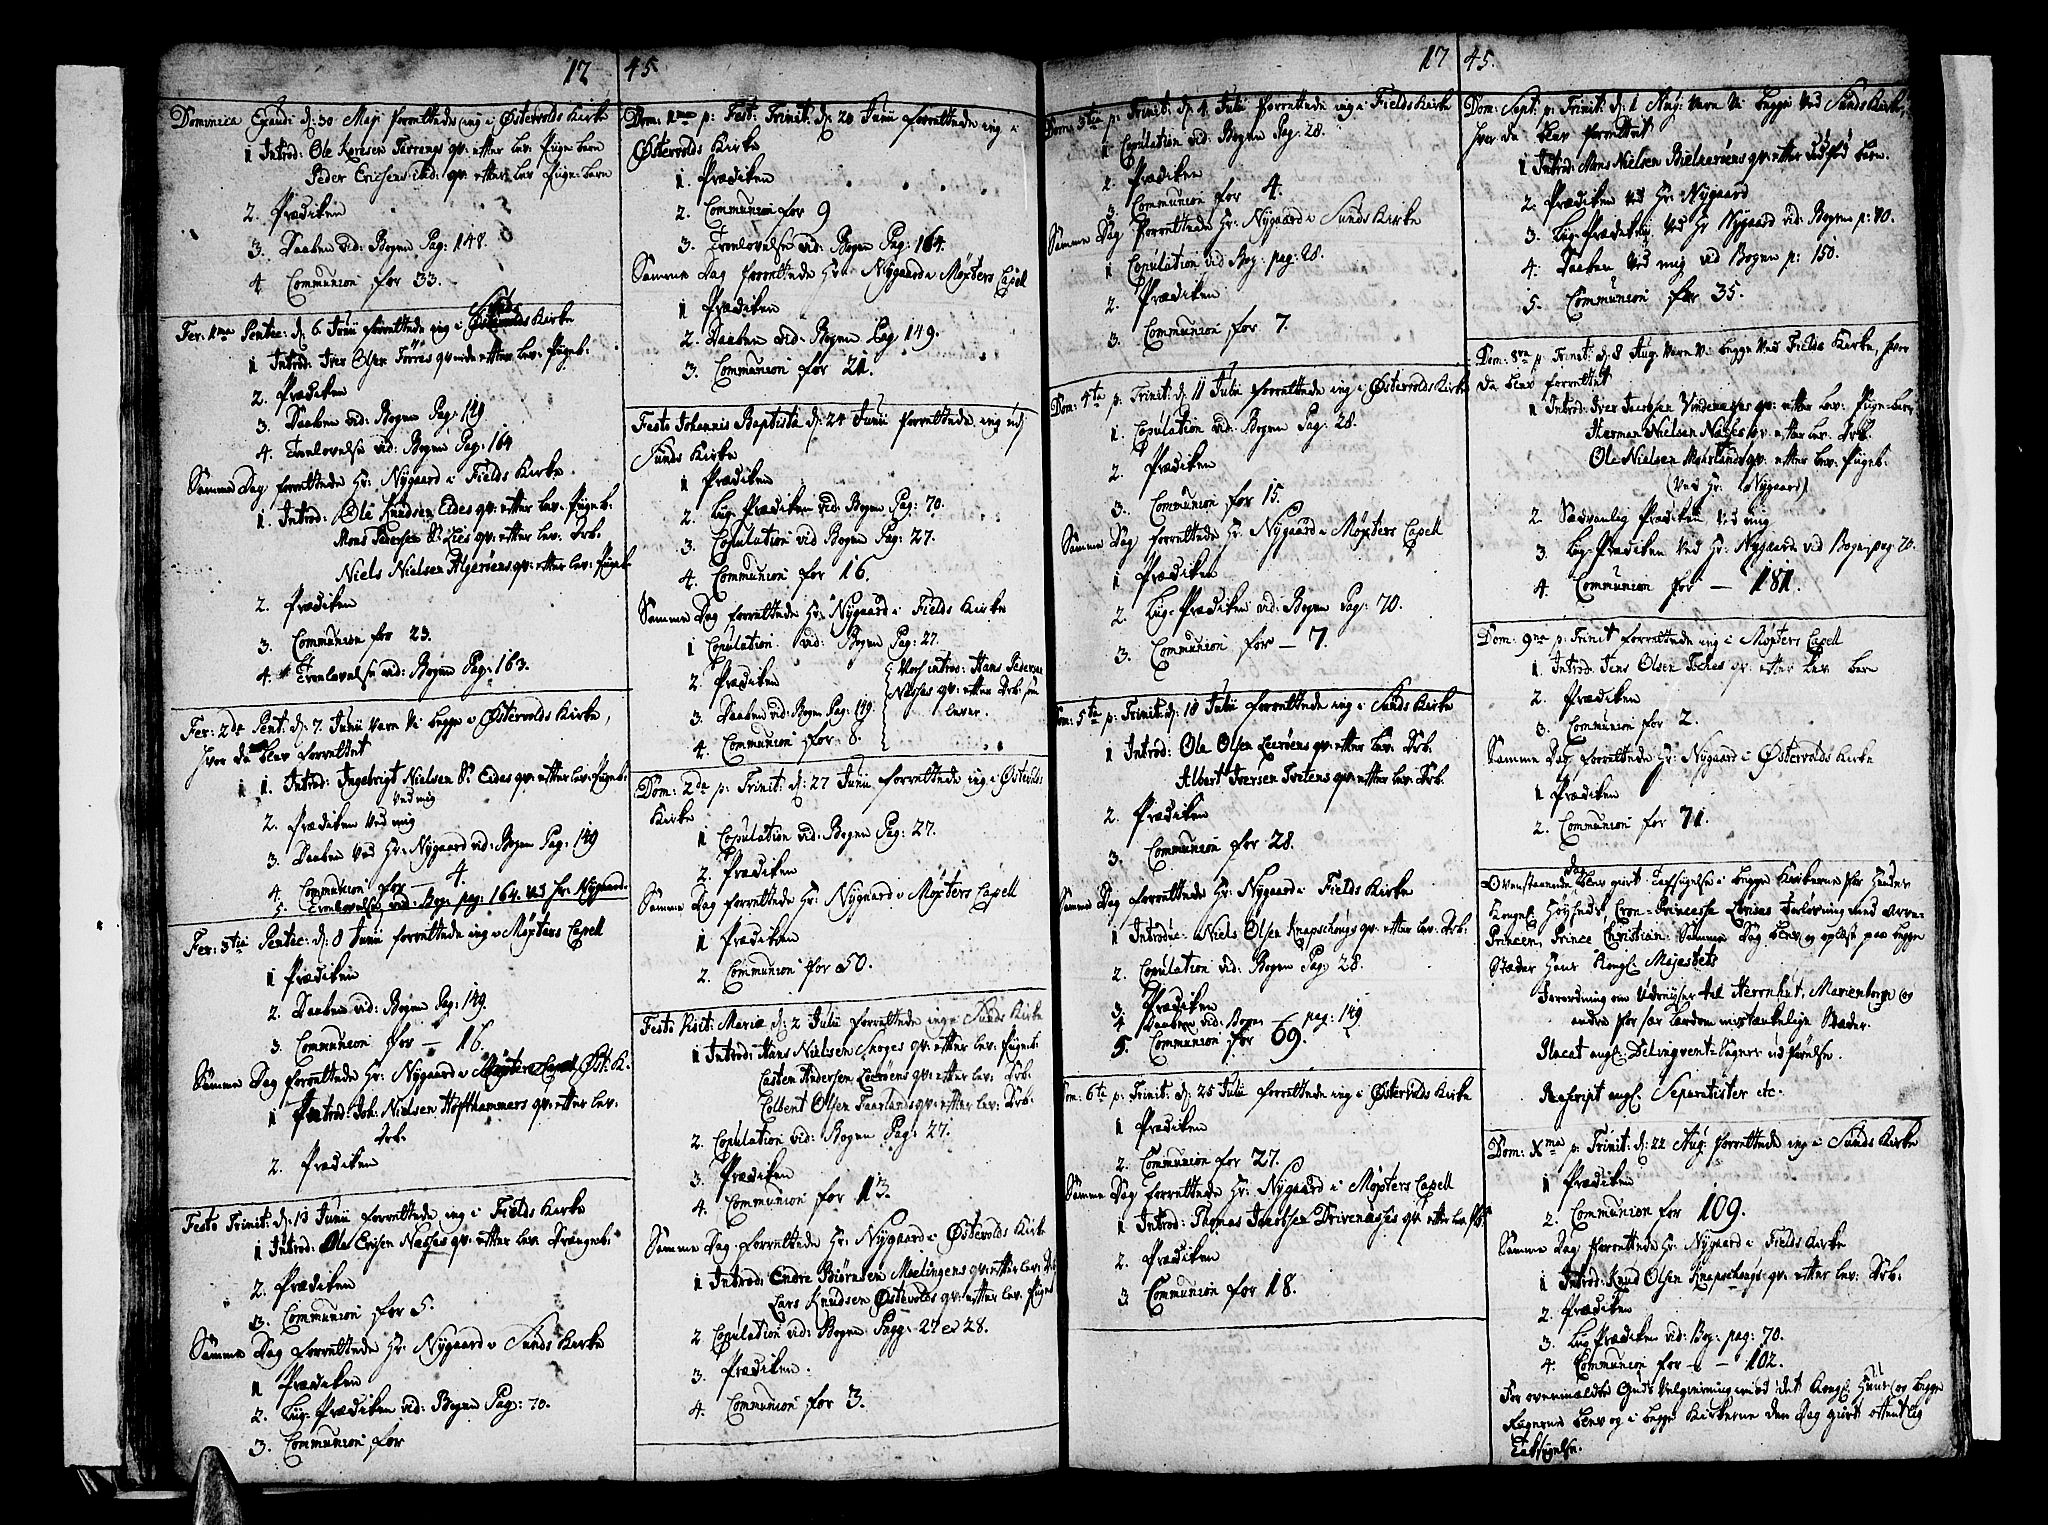 17 45
Dominica Exaudi d: 30 Maji forrettede ieg i Østervolds Kirke
1 Introd: Ole Koresen qv: efter lev: Pigebarn
Peder Erichsens ibid: qv: efter lev Pigebarn
2. Prædiken
3. Daaben vid: Bogen Pag: 148.
4 Communion for 33.
Fer: 1ma Pentec: d: 6 Junii forrettede ieg i Sunds Kirke
1 Introd: Iver Olsen Torres qvinde efter lev: Pigeb:
2. Prædiken
3. Daaben vid: Bogen Pag: 149
4. Trolovelse vid: Bogen Pag: 164
Samme Dag forrettede Hr: Nygaard i Fields Kirke
1. Introd: Ole Knudsen Eides qv: efter lev: Pigeb:
Mons Pedersen St: Lies qv: efter lev. Drb.
Niels Nielsen Algerøens qv: efter lev: Pigeb
2. Prædiken
3. Communion for 23.
4. Trolovelse vid: Bogen Pag: 163.
Fer: 2da Pent: d: 7. Junii varn Vi begge i Østervolds Kirke,
hvor da blev forrettet
1. Introd: Ingebrigt Nielsen St: Eides qv: efter lev: Pigeb:
ved mig
2. Prædiken ved mig
3. Daaben ved Hr: Nygaard vid: Bogen Pag: 149
4. Communion for — 4.
5. Trolovelse vid: Bog: pag: 164 ved Hr: Nygaard.
Fer: 3tia Pentec: d: 8 Junii forrettede ieg i Møxters Capell
1 Prædiken
2. Daaben vid: Bogen Pag: 149.
3. Communion for — 16.
Samme Dag forrettede Hr: Nygaard i Øst: K.
1 Introd: Joh: Nielsen Hofthammers qv: efter lev:
Drb.
2. Prædiken
Festo Trinit: d: 13 Junii forrettede ieg i Fields Kirke
1 Introd: Ole Erichsen Næsses qv: efter lev: Drængeb:
2. Prædiken
3. Communion for 5.
Samme Dag forrettede Hr: Nygaard i Sunds Kirke
1 Prædiken
2. Liig-Prædiken vid: Bogen Pag: 70.
3. Communion for
Dom: 1ma p: Fest: Trinit: d: 20 Junii forrettede ieg i
Østervolds Kirke
1. Prædiken
2. Communion for 9
3. Trolovelse vid: Bogen Pag: 164.
Samme Dag forrettede Hr: Nygaard i Møxters Capell
1 Prædiken
2. Daaben vid: Bogen Pag 149.
3. Communion for 21.
Festo Johannis Baptistæ d: 24 Junii forrettede ieg udj
Sunds Kirke
1 Prædiken
2. Liig-Prædiken vid: Bogen Pag: 70.
3. Copulation vid Bogen Pag: 27.
4. Communion for 16.
Samme Dag forrettede Hr: Nygaard i Fields Kirke
1 Copulation vid: Bogen Pag: 27.
2. Prædiken
introd: Hans Pedersen
Næsses qv: efter Drb. som
lever.
3. Daaben vid: Bogen Pag: 149.
4. Communion for 8.
Dom: 2da p: Trinit: d: 27 Junii forrettede ieg i Østervolds
Kirke
1 Copulation vid: Bogen Pag: 27.
2. Prædiken
Samme Dag forrettede Hr: Nygaard i Møxters Capell
1 Prædiken
2. Communion for 50.
Festo Visit: Mariæ d: 2 Julii forrettede ieg i Sunds Kirke
1 Introd: Hans Nielsen Skoges qv: efter lev: Pigeb:
Casten Andersen Leerøens qv: efter lev: Drb.
Colbent Olsen Taarlands qv: efter lev: Drb:
2. Copulation vid: Bogen Pag: 27.
3. Prædiken
4. Communion for 13.
Samme Dag forrettede Hr: Nygaard i Østervolds Kirke
1 Introd: Endre Biørnsen Møelingens qv: efter lev: Drb
Lars Knudsen Østevolds qv: efter lev: Pigeb
2 Copulation vid: Bogen Pagg: 27 et 28.
3. Prædiken:
4. Communion for 3.
17 45.
Dom: 3tia p: Trinit: d: 4 Julii forrettede ieg i Fields Kirke
1 Copulation vid: Bogen Pag: 28.
2. Prædiken
3. Communion for 4.
Samme Dag forrettede Hr: Nygaard i Sunds Kirke
1 Copulation vid Bog: pag: 28.
2. Prædiken
3. Communion for 7.
Dom: 4ta p: Trinit: d: 11 Julii forrettede ieg i Østervolds Kirke
1. Copulation vid: Bogen Pag: 28.
2. Prædiken
3. Communion for 15.
Samme Dag forrettede Hr: Nygaard i Møxters Capell
1 Prædiken
2. Liig-Prædiken vid: Bogen Pag: 70.
3. Communion for — 7.
Dom: 5ta p: Trinit: d: 18 Julii forrettede ieg i Sunds Kirke
1 Introd: Ole Olsen Leerøens qv: efter lev: Drb.
Albert Iversen Tvetens qv: efter lev: Drb.
2. Prædiken
3. Communion for 28.
Samme Dag forrettede Hr: Nygaard i Fields Kirke
1 Introduc: Niels Olsen Knapschougs qv: efter lev: Drb:
2. Copulation vid: Bogen Pag: 28.
3. Prædiken
4 Daaben vid: Bogen pag: 149
5. Communion for 69.
Dom: 6ta p: Trinit: d: 25 Julii forrettede ieg i Østervolds Kirke
1 Prædiken
2. Communion for 27.
Samme Dag forrettede Hr: Nygaard i Møxters Capell
1 Introd: Thomas Jacobsen Drivenæsses qv: efter lev:
2. Prædiken
3. Communion for 18.
Dom: Sept: p: Trinit: d: 1 Aug: varn Vi begge ved Sunds Kirke,
hvor da blev forrettet
1 Introd: Mons Nielsen Bielkerøens qv: efter barn.
2. Prædiken ved Hr: Nygaard
3. Liig-Prædiken ved Hr Nygaard vid: Bogen p: 70.
4. Daaben ved mig vid Bogen p: 150.
5. Communion for 35.
Dom: 8va p: Trinit: d: 8 Aug. varn Vi begge ved Fields Kirke, hvor
da blev forrettet
1 Introd: Iver Jacobsen Vindenæsses qv: efter lev: Pige-barn
Herman Nielsen Næsses qv: efter lev: Drb.
Ole Nielsen qv: efter lev: Pigeb.
(ved Hr: Nygaard)
2. Sædvanlig Prædiken ved mig
3. Liig-Prædiken ved Hr: Nygaard vid Bogen pag 70.
4. Communion for — 181.
Dom: 9na p: Trinit forrettede ieg i Møxters Capell
1. Introd: Jens Olsen qv: efter lev: barn
2. Prædiken
3. Communion for 2.
Samme Dag forrettede Hr: Nygaard i Østervolds Kirke
1 Prædiken
2. Communion for 71.
Ovenstaaende Dag blev giort Tacksigelse i begge Kirkerne for Hendes
Kongel: Høyheds, Cron-Princesse Lovises Forløsning med Arve-
Princen, Prince Christian. Samme Dag blev og oplæst paa begge
Stæder Hans Kongl: Majestets
Forordning om Udreyser til Herrnhut, Marienborg og
andre for sær Lærdom mistænkelige Stæder.
Placat angl: Delinqvent-Sagers udførelse.
Rescript angl: Separatister etc.
Dom: Xma p: Trinit: d: 22 Aug: forrettede ieg i Sunds Kirke
1 Prædiken
2. Communion for 109.
Samme Dag forrettede Hr: Nygaard i Fields Kirke
1 Introd: Knud Olsen Knapschougs qv: efter lev: Drb.
2. Prædiken
3. Liig Prædiken vid: Bog: pag: 70.
4. Communion for — — 102.
For ovenmældte Guds Velgierning imod det Kongl: Huus og begge
Rigerne blev og i begge Kirkerne den Dag giort offentlig
Taksigelse.